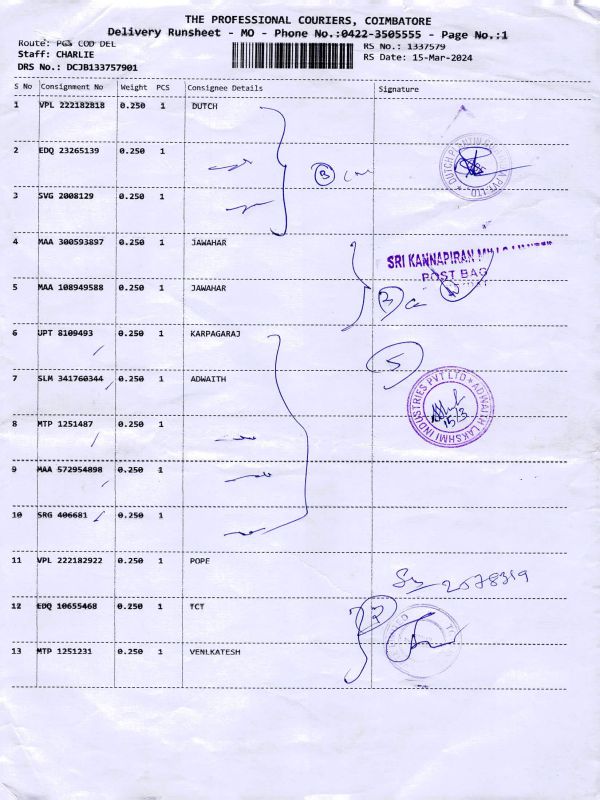 THE PROFESSIONAL COURIERS, COIMBATORE
Delivery Runsheet - MO - Phone No.:0422-3505555 - Page No.:1
Route: PCS COD DEL
RS No.: 1337579
Staff: CHARLIE
RS Date: 15-Mar-2024
DRS No.: DCJB133757901
S No Consignment No Weight PCS Consignee Details Signature
1 VPL 222182818 0.250 1 DUTCH
2 EDQ 23265139 0.250 1
3 SVG 2008129 0.250 1
4 MAA 300593897 0.250 1 JAWAHAR
SRI KANNAPIRAN
POST BAG
5 MAA 108949588 0.250 1 JAWAHAR
6 UPT 8109493 0.250 1 KARPAGARAJ
5
7 SLM 341760344 0.250 1 ADWAITH
ADWAITH LAKSHMI INDUSTRIES PVT LTD
15/3
8 MTP 1251487 0.250 1
9 MAA 572954898 0.250 1
10 SRG 406681 0.250 1
11 VPL 222182922 0.250 1 POPE
12 EDQ 10655468 0.250 1 TCT
13 MTP 1251231 0.250 1 VENLKATESH